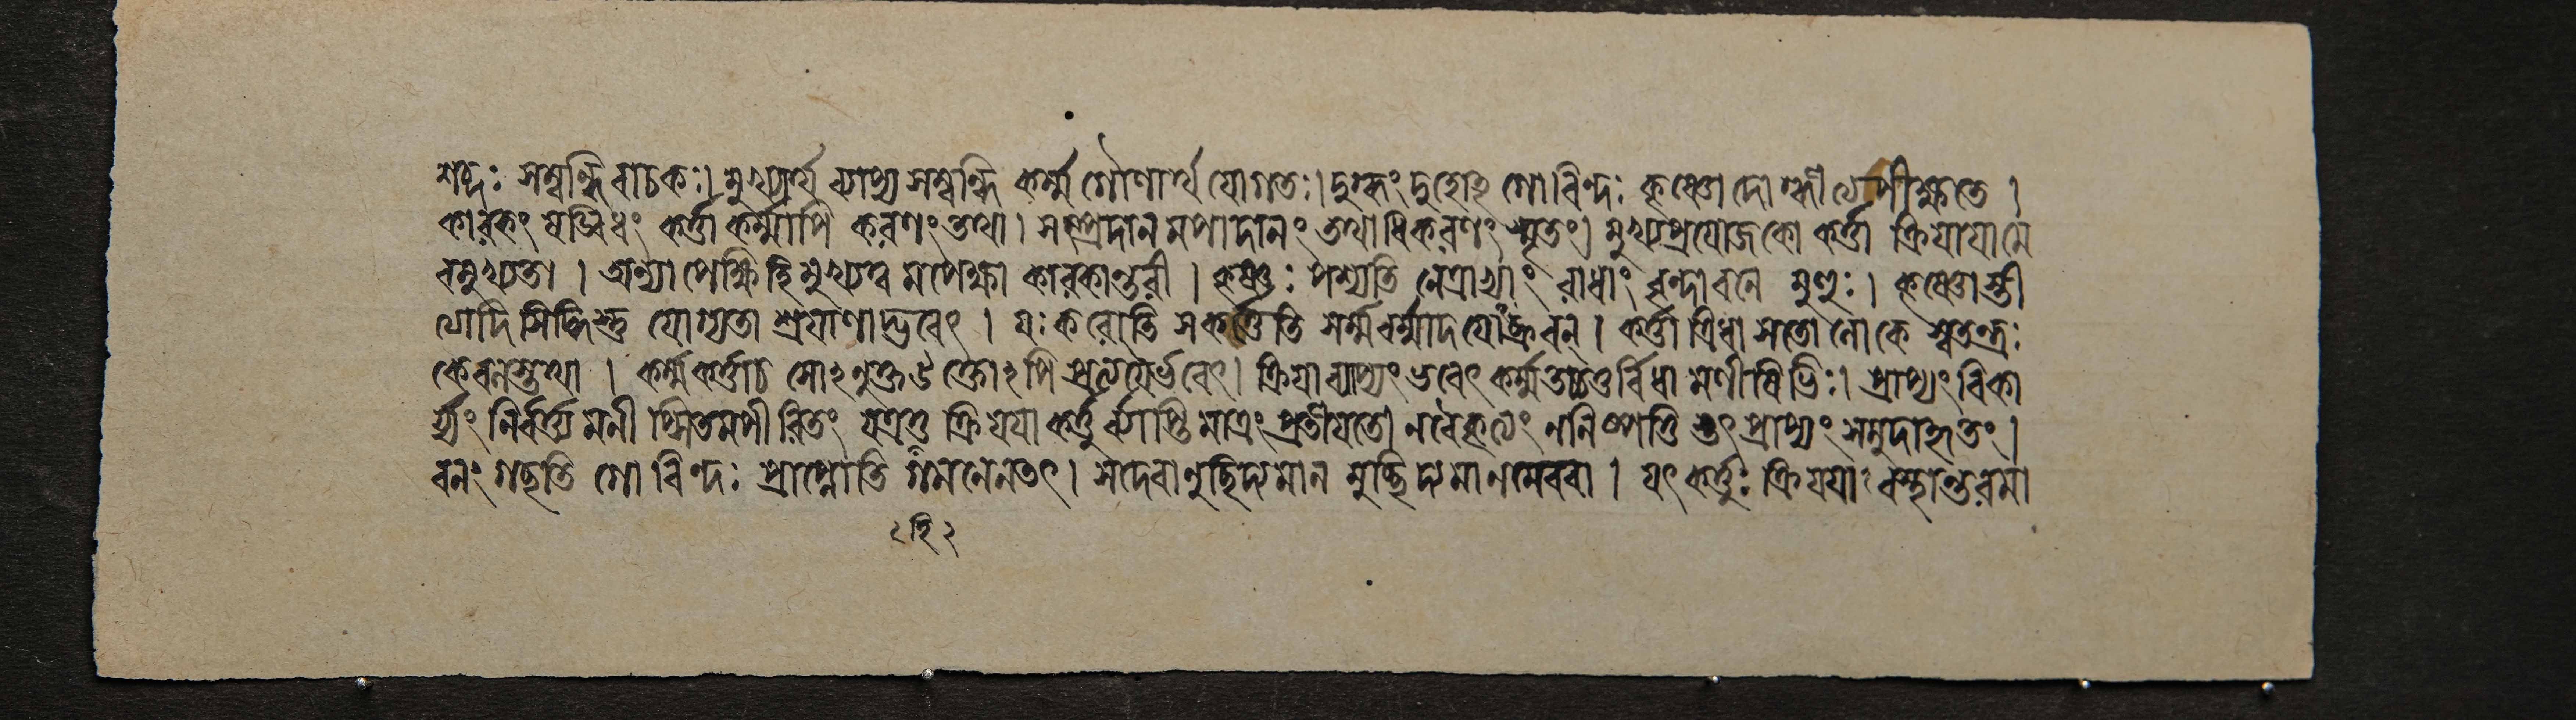 শব্দঃ সম্বন্ধি বাচকঃ। মুখ্যার্থ ব্যাপ্য সম্বন্ধি কর্ম্ম গৌণার্থ যোগতঃ। দুগ্ধং দুহোঽ গোবিন্দঃ কৃষ্ণো দোগ্ধী
কারকং ষড্বিধং কর্ত্তা কর্ম্মাপি করণং তথা। সম্প্রদানমপাদানং তথাধিকরণং স্মৃতং। মুখ্যপ্রযোজকো কর্ত্তা ক্রিয়ায়ামে
বমুখ্যতা। অন্যাপেক্ষি হি মুখ্যত্ব মপেক্ষা কারকান্তরী। কৃষ্ণঃ পশ্যতি নেত্রাভ্যাং রাধাং বৃন্দাবনে মুহুঃ। কৃষ্ণোস্তী
ত্যাদি সিদ্ধিস্তু যোগ্যতা শ্রয়ণাদ্ভবেৎ। যঃ করোতি স কর্ত্তেতি কর্ত্তা ত্রিধা মতো লোকে স্বতন্ত্রঃ
কেবলস্তথা। কর্ম্মকর্ত্তাচ সোঽনুক্ত উক্তোঽপি প্রত্যয়ৈর্ভবেৎ। ক্রিয়া ব্যাপ্যং ভবেৎ কর্ম্ম তচ্চতুর্বিধা মণীষিভিঃ। প্রাপ্যং বিকা
র্য্যং নির্বর্ত্ত্য মনীপ্সিতমপীরিতং যত্রতু ক্রিয়য়া কর্ত্তুর্ব্যাপ্তি মাত্রং প্রতীয়তে নবৈকৃত্যং ননিষ্পত্তি স্তৎ প্রাপ্যং সমুদাহৃতং।
বনং গছতি গোবিন্দঃ প্রাপ্নোতি গমনেনতৎ। সদেবানুছিদ্যমান মুছিদ্যমানমেববা। যৎ কর্ত্তুঃ ক্রিয়য়া